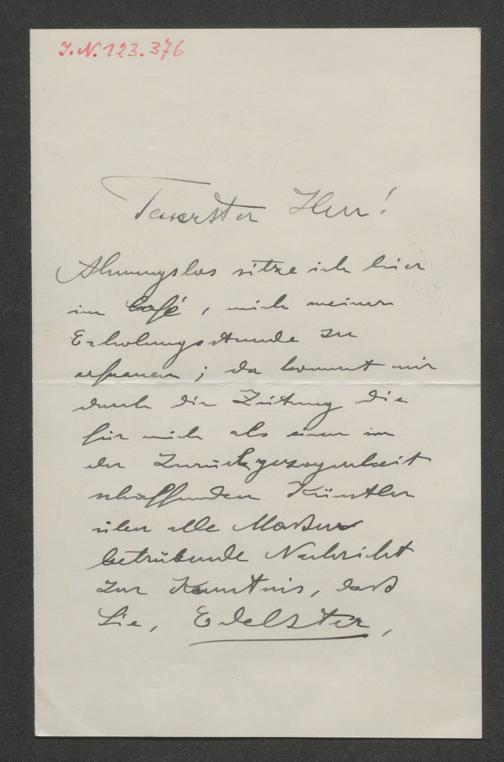 J.N. 123.376
Teuerster Herr!
Ahnungslos sitze ich hier
im Café, mich meiner
Erholungsstunde zu
erfreuen; da kommt mir
durch die Zeitung die
für mich als einen in
der Zurückgezogenheit
schaffenden Künstler
über alle Massen
betrübende Nachricht
zur Kenntnis, dass
Sie, Edelster,